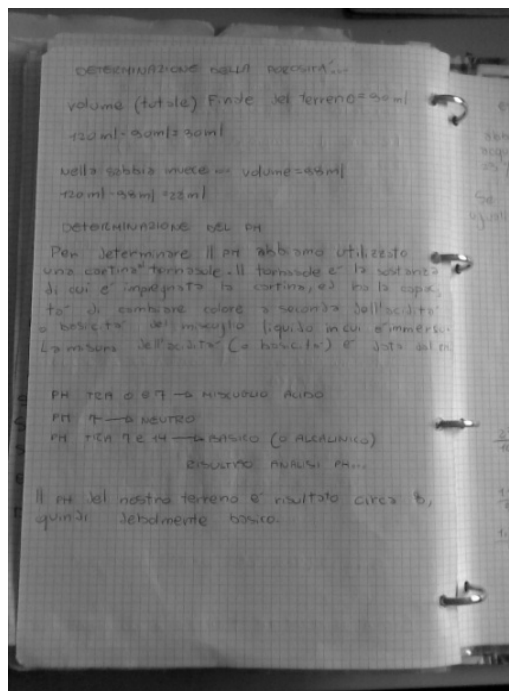 DETERMINAZIONE DELLA POROSITÀ...
volume (totale) finale del terreno = 90ml
120ml - 90ml = 30ml
Nella sabbia invece... volume = 98ml
120ml - 98ml = 22ml
DETERMINAZIONE DEL PH
Per determinare il PH abbiamo utilizzato
una cartina tornasole. Il tornasole è la sostanza
di cui è impregnata la cartina, ed ha la capaci
tà di cambiare colore a seconda dell'acidità
o basicità del miscuglio liquido in cui è immerso.
La misura dell'acidità (o basicità) è data dal
PH TRA 0 e 7 → MISCUGLIO ACIDO
PH 7 → NEUTRO
PH TRA 7 E 14 → BASICO (O ALCALINICO)
RISULTATO ANALISI PH...
Il PH del nostro terreno è risultato circa 8,
quindi debolmente basico.